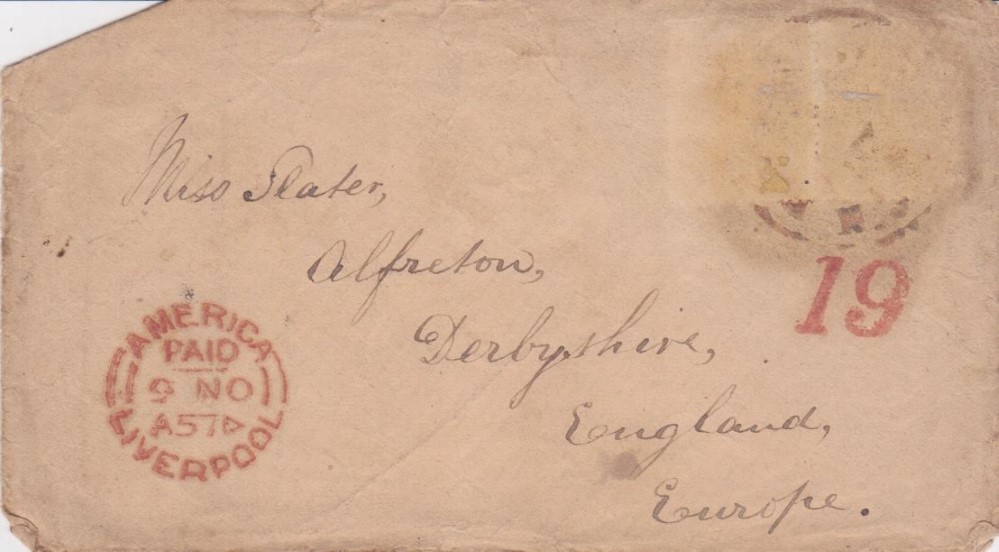 Miss Slater,
Alfreton,
Derbyshire,
England,
Europe.
19
AMERICA
PAID
9 NO
A57A
LIVERPOOL